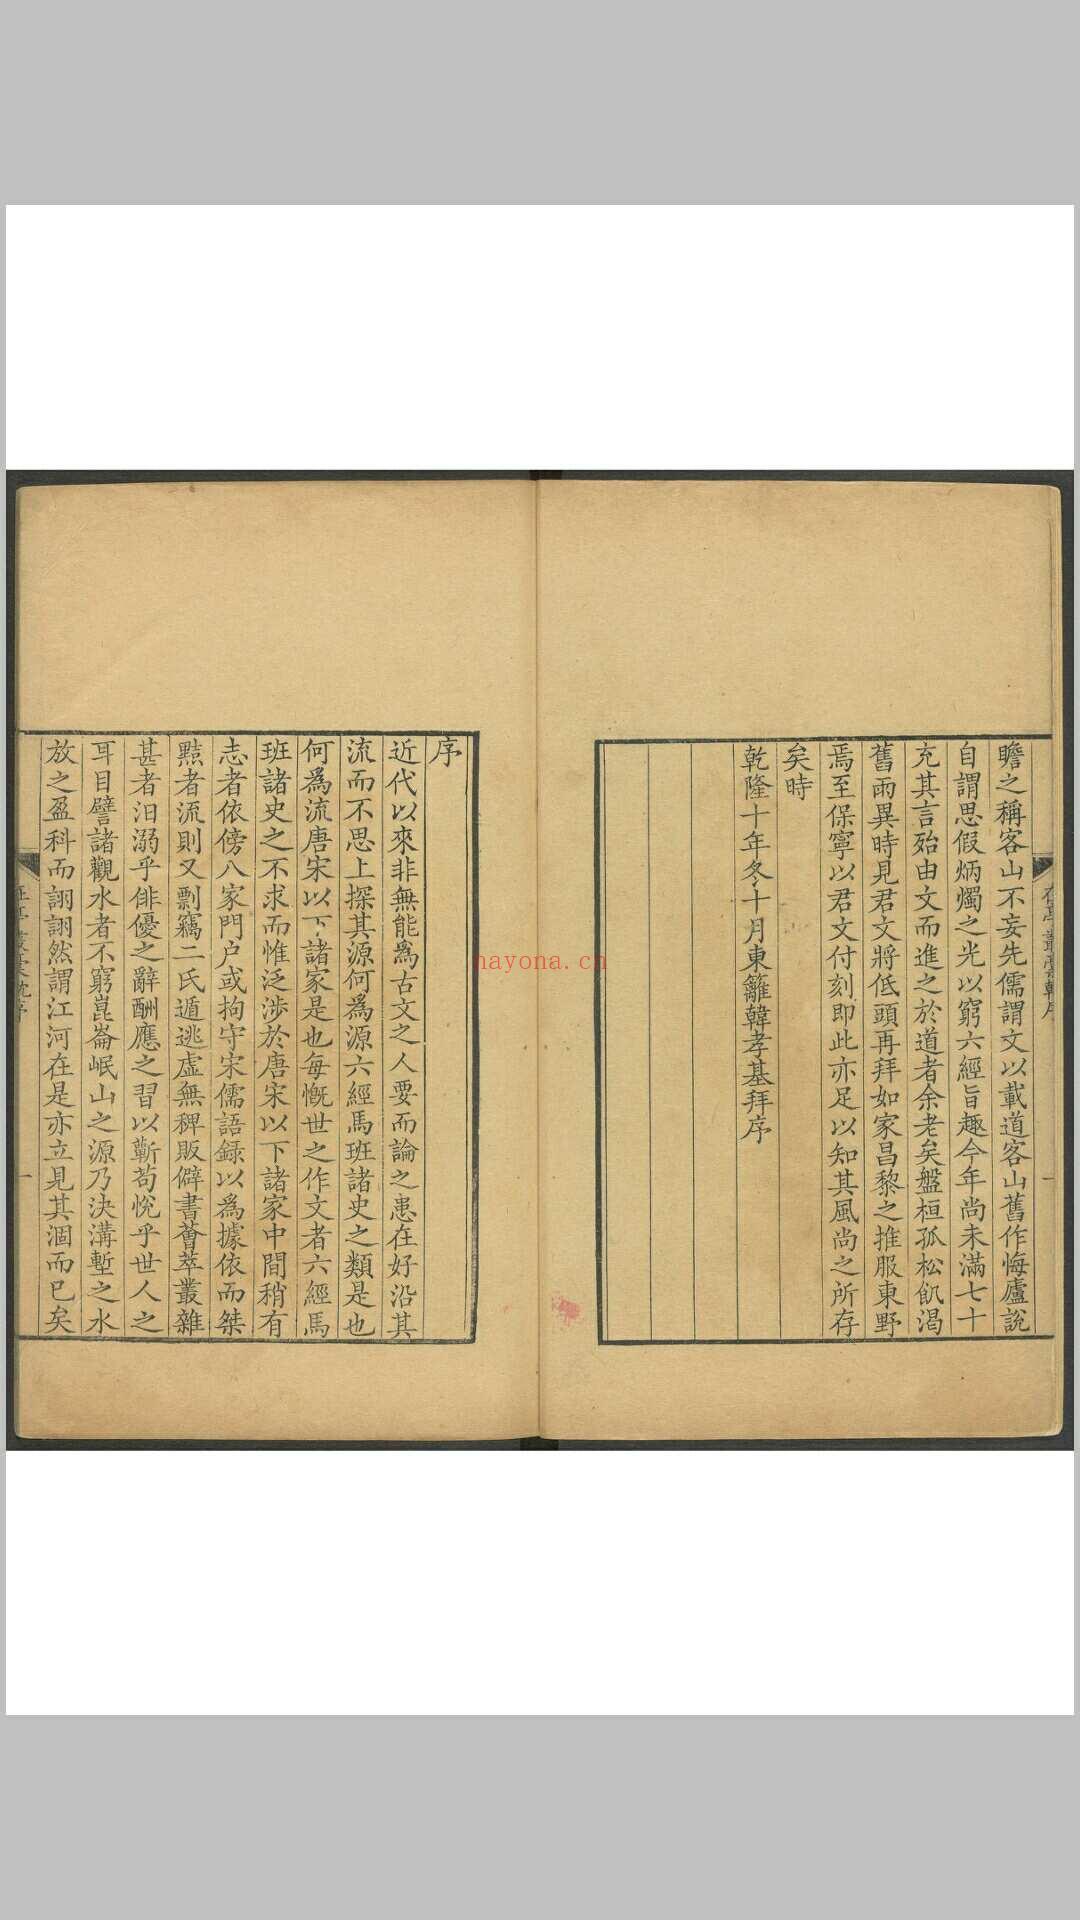 瞻之稱客山不妄先儒謂文以載道客山舊作悔廬說
自謂思假炳燭之光以窮六經旨趣今年尚未滿七十
充其言殆由文而進之於道者余老矣盤桓孤松飢渴
舊雨異時見君文將低頭再拜如家昌黎之推服東野
焉至保寧以君文付刻即此亦足以知其風尚之所存
矣時
乾隆十年冬十月東籬韓孝基拜序
序
近代以來非無能爲古文之人要而論之患在好沿其
流而不思上探其源何爲源六經馬班諸史之類是也
何爲流唐宋以下諸家是也每慨世之作文者六經馬
班諸史之不求而惟泛涉於唐宋以下諸家中間稍有
志者依傍八家門户或拘守宋儒語録以爲據依而桀
黠者流則又剽竊二氏遁逃虛無稗販僻書薈萃叢雜
甚者汨溺乎俳優之辭酬應之習以蘄苟悅乎世人之
耳目譬諸觀水者不窮崑崙岷山之源乃決溝塹之水
放之盈科而詡詡然謂江河在是亦立見其涸而已矣
一
hayona.cn